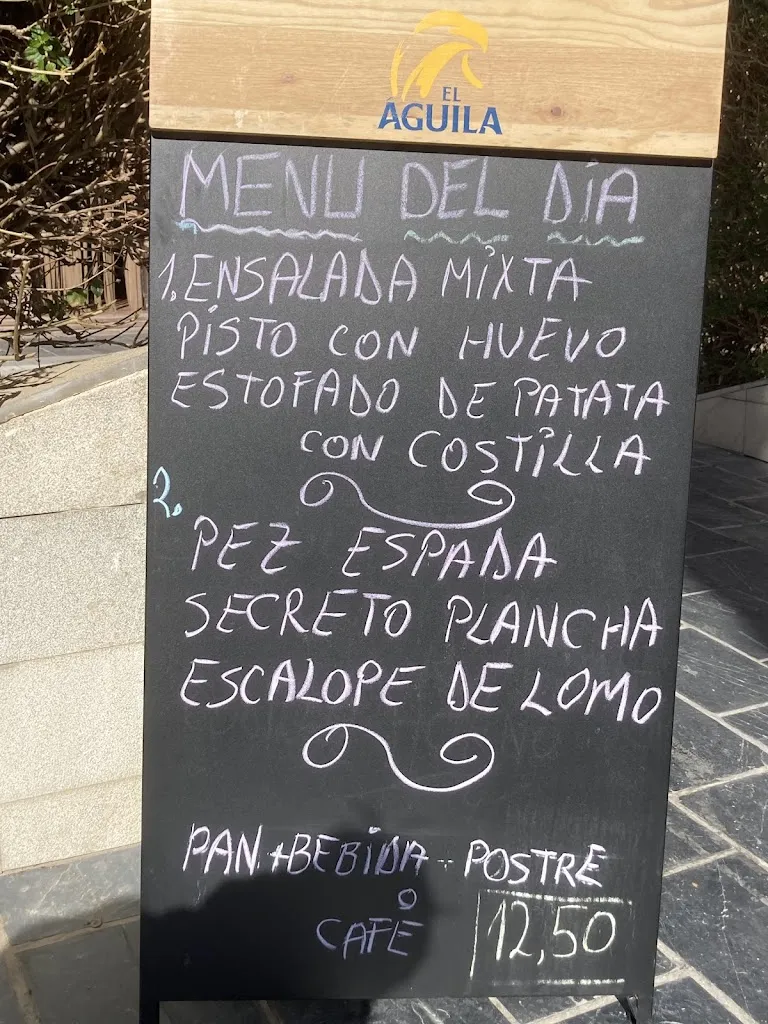 EL
AGUILA
MENU DEL DÍA
1. ENSALADA MIXTA
PISTO CON HUEVO
ESTOFADO DE PATATA
CON COSTILLA
2.
PEZ ESPADA
SECRETO PLANCHA
ESCALOPE DE LOMO
PAN + BEBIDA + POSTRE
O
CAFE
12,50